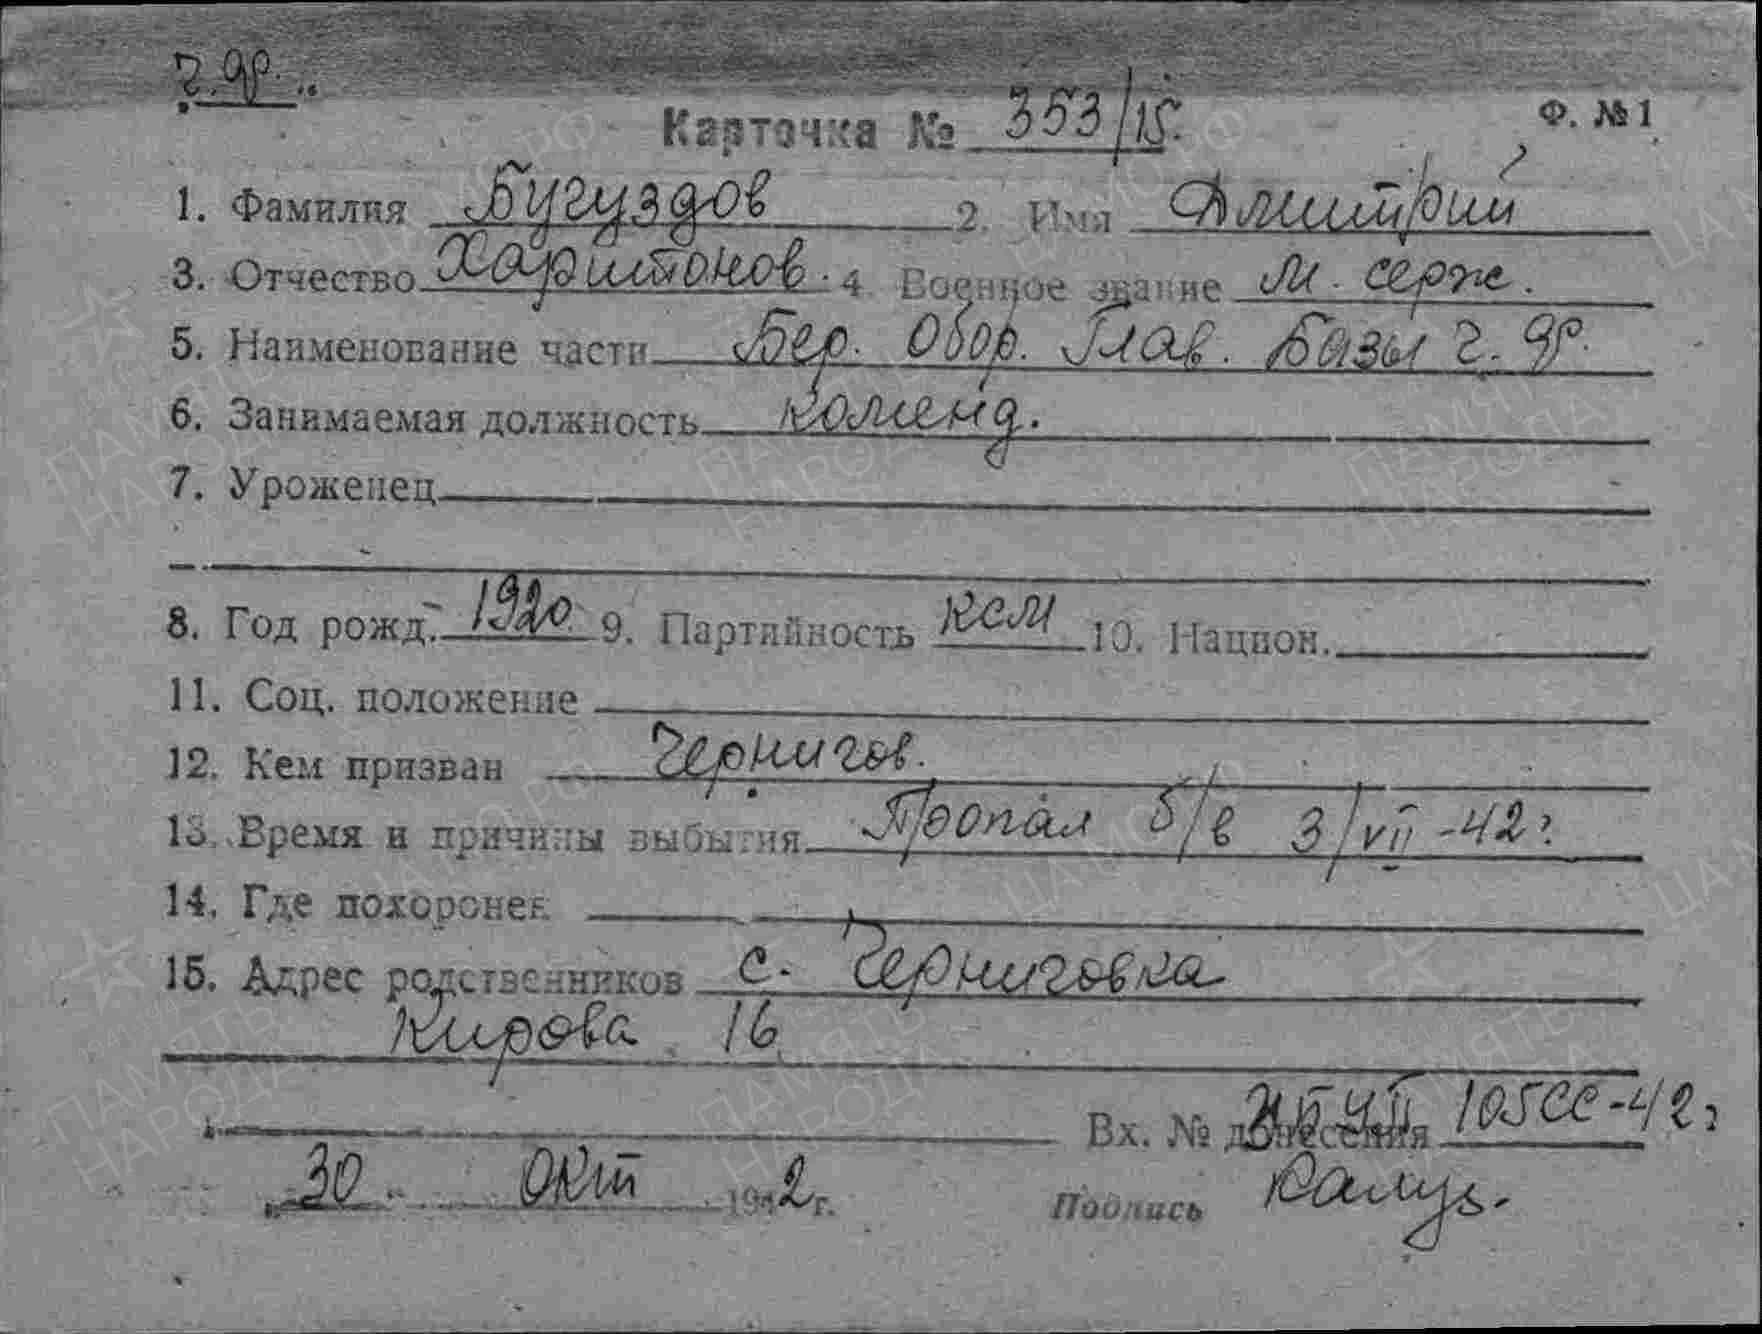 г. др.
Карточка № 353/15.
Ф. № 1
1. Фамилия Бугуздов 2. Имя Дмитрий
3. Отчество Харитонов. 4. Военное звание М. серж.
5. Наименование части Бер. Обор. Глав. Базы г. др.
6. Занимаемая должность команд.
7. Уроженец
8. Год рожд. 1920 9. Партийность КСМ 10. Национ.
11. Соц. положение
12. Кем призван Чернигов.
13. Время и причины выбытия Пропал б/в 3/VII-42г.
14. Где похоронен
15. Адрес родственников с. Черниговка
Кирова 16
Вх. № донесения 105СС-42г
30 окт 1942г. Подпись